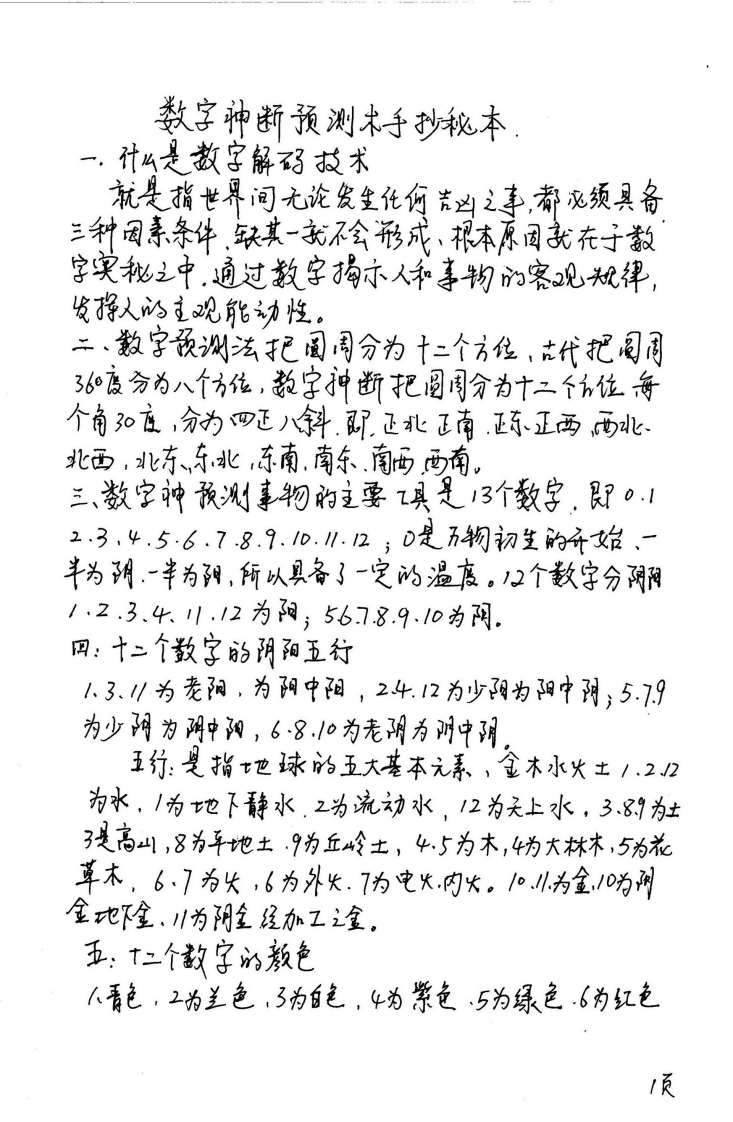 数字神断预测术手抄秘本.
一.什么是数字解码技术
就是指世界间无论发生任何吉凶之事,都必须具备
三种因素条件.缺其一就不会形成、根本原因就在于数
字奥秘之中.通过数字揭示人和事物的客观规律,
发挥人的主观能动性。
二、数字预测法把圆周分为十二个方位、古代把圆周
360度分为八个方位,数字神断把圆周分为十二个方位.每
个角30度,分为四正八斜.即.正北正南.正东正西,西北、
北西,北东、东北,东南,南东、南西,西南。
三、数字神预测事物的主要工具是13个数字.即0.1
2.3.4.5.6.7.8.9.10.11.12;0是万物初生的开始、一
半为阴.一半为阳,所以具备了一定的温度。12个数字分阴阳
1.2.3.4.11.12为阳;5.6.7.8.9.10为阴。
四:十二个数字的阴阳五行
1.3.11为老阳.为阳中阳,2.4.12为少阳为阳中阴;5.7.9
为少阴为阴中阳,6.8.10为老阴为阴中阴。
五行:是指地球的五大基本元素、金木水火土1.2.12
为水.1为地下静水.2为流动水,12为天上水.3.8.9为土
3是高山,8为平地土.9为丘岭土,4.5为木,4为大林木,5为花
草木.6.7为火,6为外火.7为电火.内火。10.11.为金,10为阴
金地下金、11为阴金经加工之金。
五:十二个数字的颜色
1.青色,2为兰色,3为白色,4为紫色.5为绿色.6为红色
1页